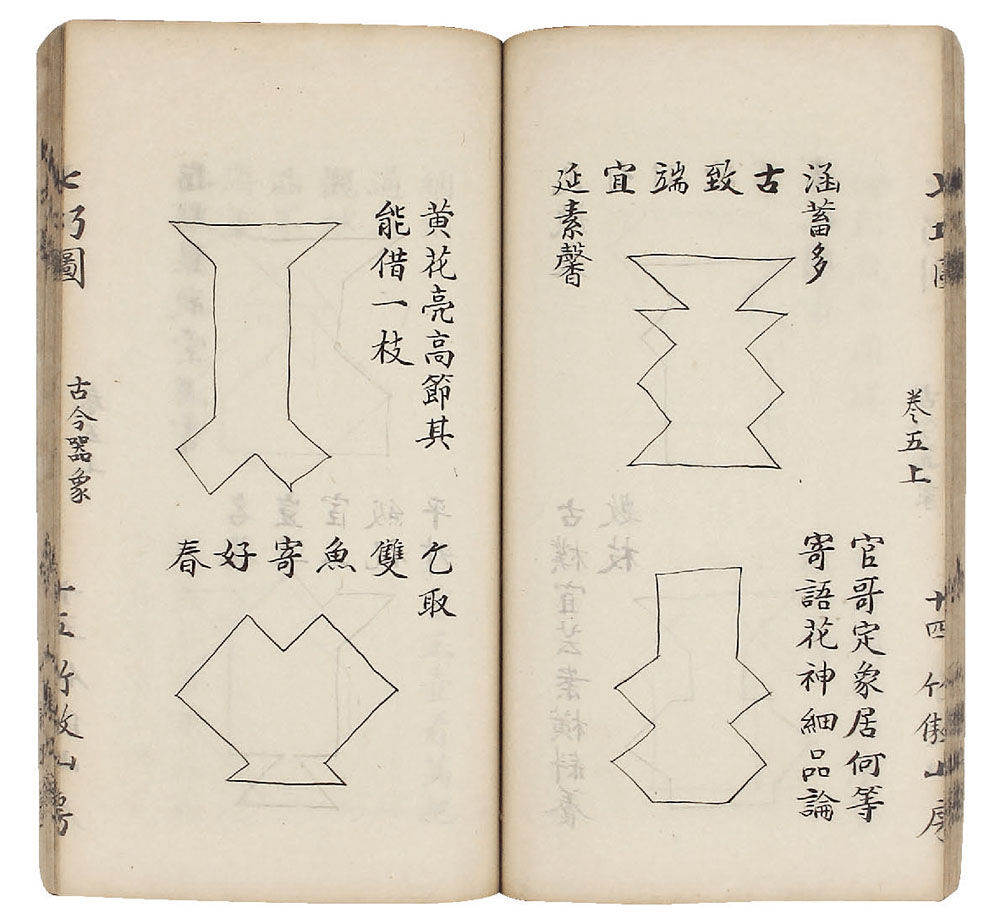 卷五上
十四
涵蓄多
古致端宜
延素馨
官哥定象居何等
寄語花神細品論
黄花亮高節其
能借一枝
乞取
雙魚寄好春
七巧圖
古今器象
十五